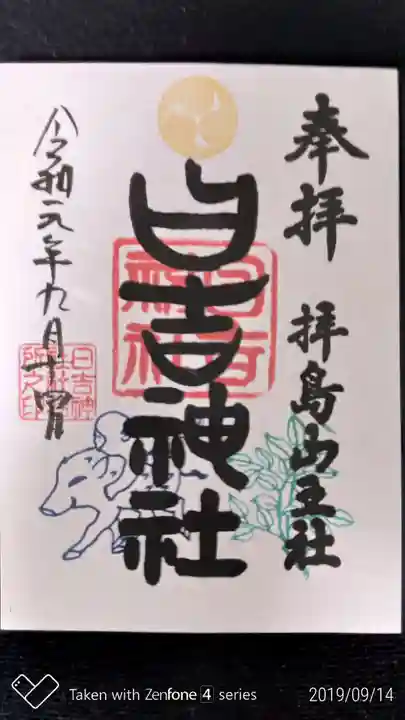 奉拝
拝島山王社
日吉神社
令和元年九月十四日
日吉
神社
日吉神
社社務
所之印
Taken with Zenfone 4 series
2019/09/14